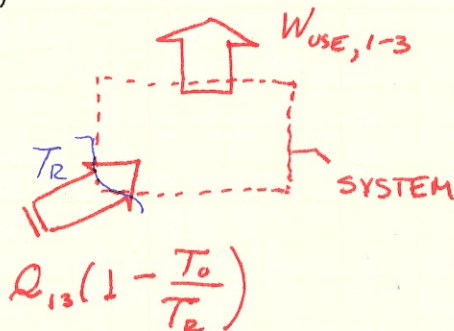 )
W_USE, 1-3
T_R
SYSTEM
Q_13 (1 - T_0/T_R)